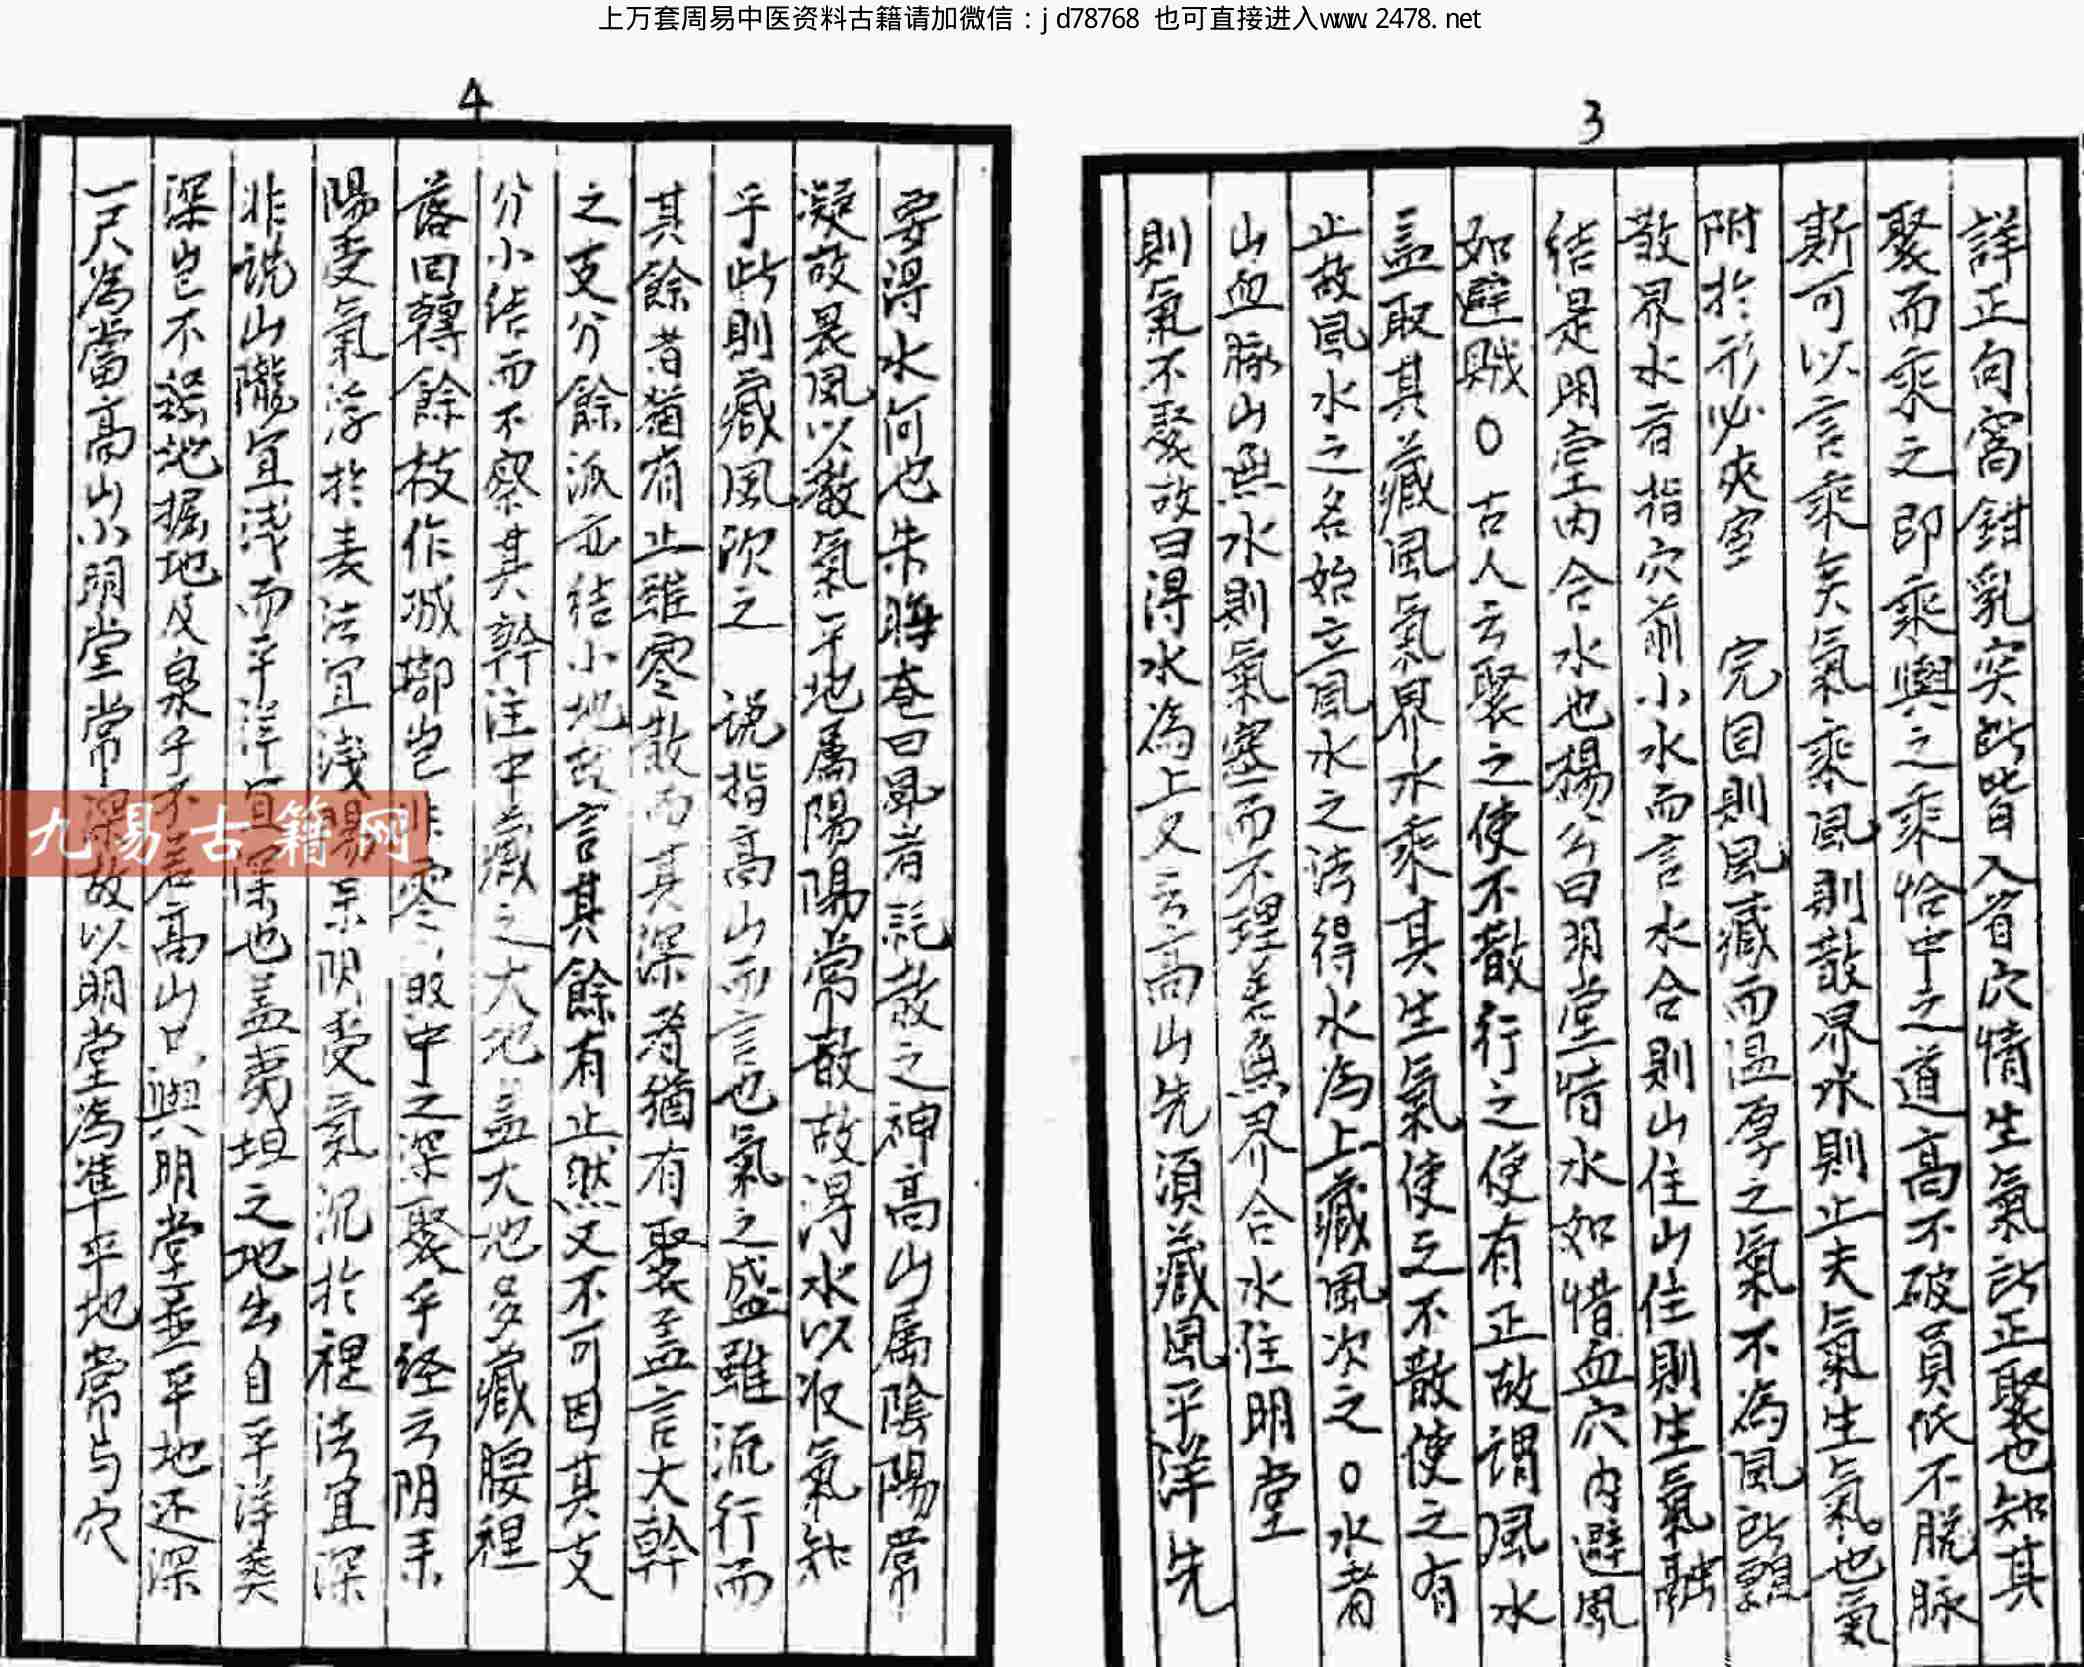 上万套周易中医资料古籍请加微信：jd78768 也可直接进入www.2478.net
3
詳正向窩鉗乳突此皆入首穴情生氣所正聚也知其
聚而乘之即乘輿之乘恰中之道高不破員低不脫脉
斯可以言乘矣氣乘風則散界水則止夫氣生氣也氣
附於形必夾室 完固則風藏而温厚之氣不為風所
散界水者指穴前小水而言水合則山住山住則生氣融
結是明堂内合水也楊公曰明堂惜水如惜血穴内避風
如避賊○古人云聚之使不散行之使有止故謂風水
盖取其藏風氣界水乘其生氣使之不散使之有
止故風水之名始立風水之法得水為上藏風次之○水者
山血脉山無水則氣塞而不理無界合水注明堂
則氣不聚故曰得水為上又云高山先須藏風平洋先
4
要得水何也朱晦菴曰風者散之神高山属陰陽常
凝故畏風以散氣平地属陽陽常散故得水以收氣知
乎此則藏風次之 説指高山而言也氣之盛雖流行而
其餘者猶有止雖零散而其深者猶有聚盖言大幹
之支分餘派亦結小地故言其餘有止然又不可因其支
分小結而不察其幹注中藏之大地盖大地多藏腰裡
落回轉餘枝作城 豈非零散中之深聚乎经云阴来
陽受氣浮於表法宜浅陽来阴受氣沉於裡法宜深
非説山隴宜浅而平洋宜深也盖夷坦之地出自平洋葵
深豈不 地掘地及泉乎不若高山只與明堂並平地还深
一尺為當高山小明堂常深故以明堂為準平地常与穴
九易古籍网